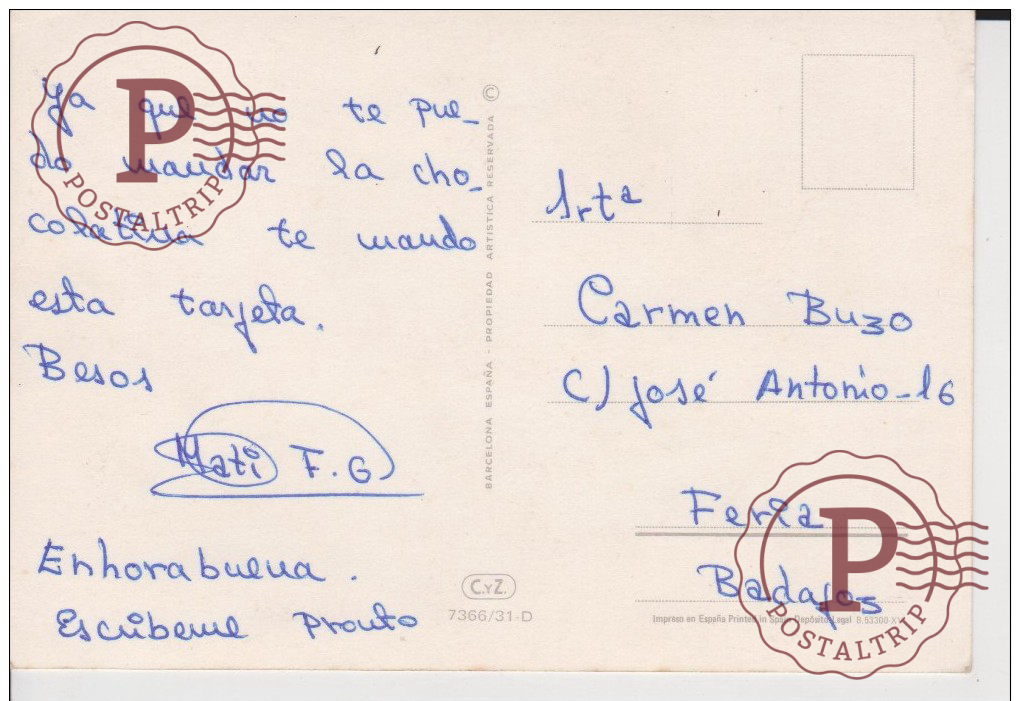 Ya que no te pue-
do mandar la cho-
colatina te mando
esta tarjeta.
Besos
Mati F.G
Enhorabuena.
Escribeme pronto
BARCELONA ESPAÑA - PROPIEDAD ARTISTICA RESERVADA ©
C.YZ.
7366/31-D
Srtª
Carmen Buzo
C) José Antonio-16
Feria
Badajos
Impreso en España Printed in Spain Depósito Legal B.53300-XVI
P
POSTALTRIP
P
POSTALTRIP